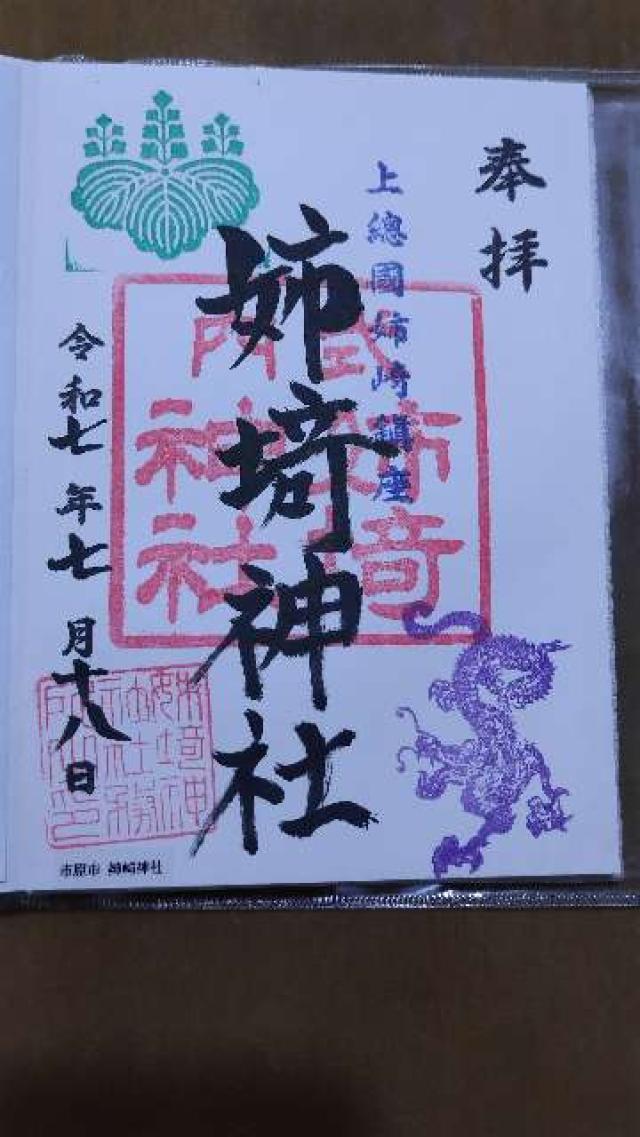 奉拝
上總國姉崎鎮座
式内
姉埼
神社
姉埼神社
令和七年七月十八日
市原市 姉崎神社